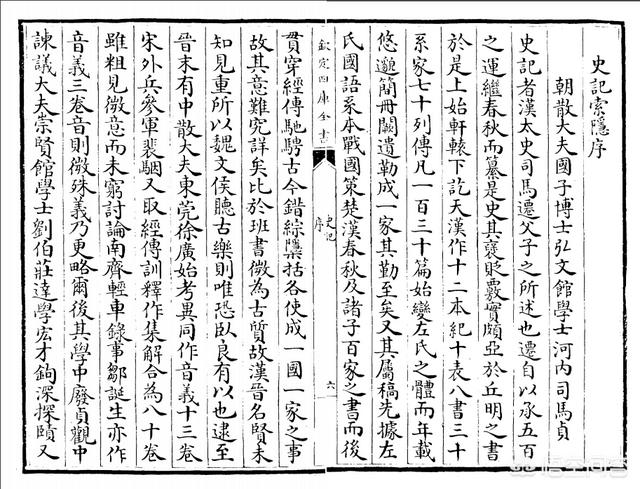 史記索隱序
朝散大夫國子博士弘文館學士河內司馬貞
史記者漢太史司馬遷父子之所述也遷自以承五百
之運繼春秋而纂是史其褒貶覈實頗亞於丘明之書
於是上始軒轅下訖天漢作十二本紀十表八書三十
系家七十列傳凡一百三十篇始變左氏之體而年載
悠邈簡冊闕遺勒成一家其勤至矣又其屬稿先據左
氏國語系本戰國策楚漢春秋及諸子百家之書而後
欽定四庫全書
史記
序
六
貫穿經傳馳騁古今錯綜隱括各使成一國一家之事
故其意難究詳矣比於班書微為古質故漢晉名賢未
知見重所以魏文侯聽古樂則唯恐臥良有以也逮至
晉末有中散大夫東莞徐廣始考異同作音義十三卷
宋外兵參軍裴駰又取經傳訓釋作集解合為八十卷
雖粗見微意而未窮討論南齊輕車錄事鄒誕生亦作
音義三卷音則微殊義乃更略爾後其學中廢貞觀中
諫議大夫崇賢館學士劉伯莊達學宏才鉤深探賾又